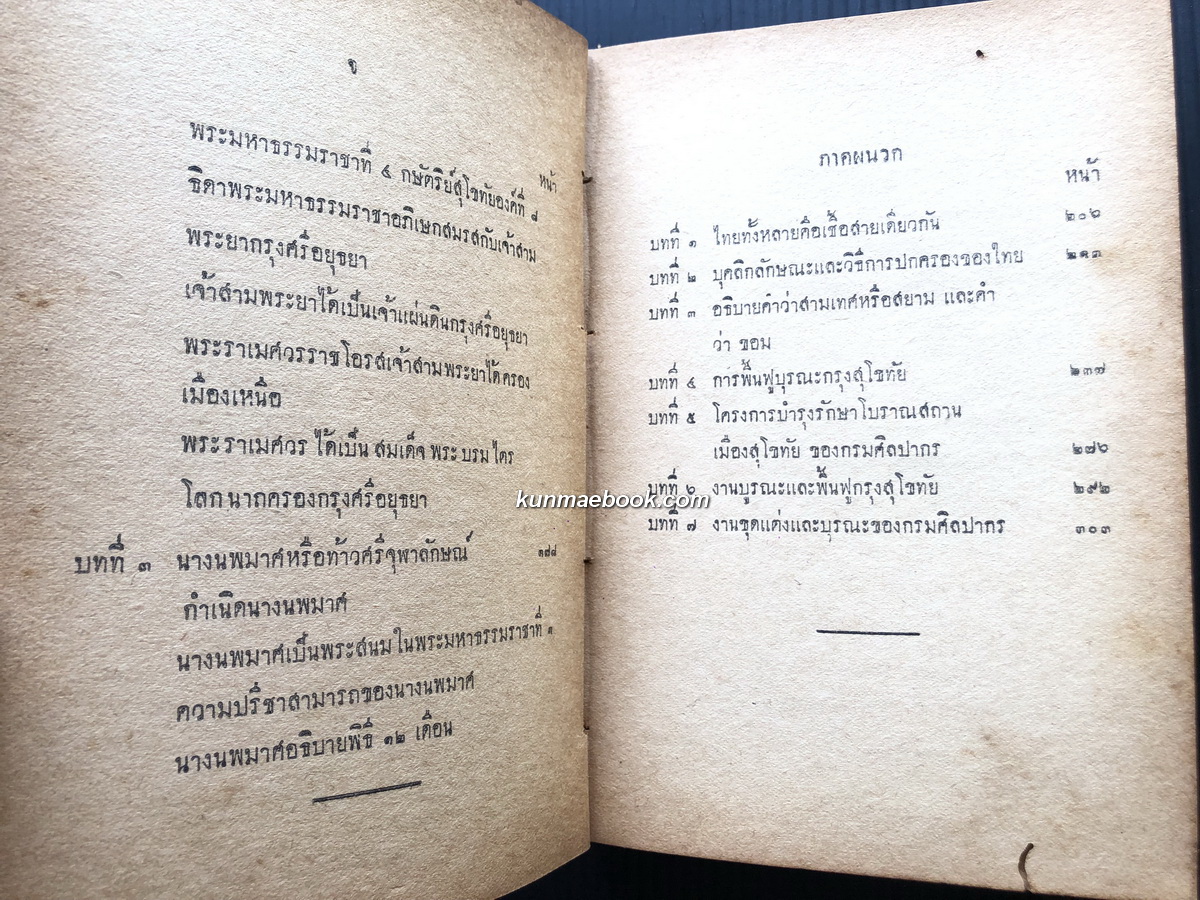 จ
หน้า
พระมหาธรรมราชาที่ ๔ กษัตริย์สุโขทัยองค์ที่ ๘
ธิดาพระมหาธรรมราชาอภิเษกสมรสกับเจ้าสาม
พระยากรุงศรีอยุธยา
เจ้าสามพระยาได้เป็นเจ้าแผ่นดินกรุงศรีอยุธยา
พระราเมศวรราชโอรสเจ้าสามพระยาได้ครอง
เมืองเหนือ
พระราเมศวร ได้เป็น สมเด็จ พระ บรม ไตร
โลก นาถครองกรุงศรีอยุธยา
บทที่ ๓ นางนพมาศหรือท้าวศรีจุฬาลักษณ์ ๑๘๘
กำเนิดนางนพมาศ
นางนพมาศเป็นพระสนมในพระมหาธรรมราชาที่ ๑
ความปรีชาสามารถของนางนพมาศ
นางนพมาศอธิบายพิธี ๑๒ เดือน
ภาคผนวก
หน้า
บทที่ ๑ ไทยทั้งหลายคือเชื้อสายเดียวกัน ๒๐๖
บทที่ ๒ บุคลิกลักษณะและวิธีการปกครองของไทย ๒๑๓
บทที่ ๓ อธิบายคำว่าสามเทศหรือสยาม และคำ
ว่า ขอม
บทที่ ๔ การฟื้นฟูบูรณะกรุงสุโขทัย ๒๓๗
บทที่ ๕ โครงการบำรุงรักษาโบราณสถาน
เมืองสุโขทัย ของกรมศิลปากร ๒๗๖
บทที่ ๖ งานบูรณะและฟื้นฟูกรุงสุโขทัย ๒๙๒
บทที่ ๗ งานขุดแต่งและบูรณะของกรมศิลปากร ๓๐๓
kunmaebook.com